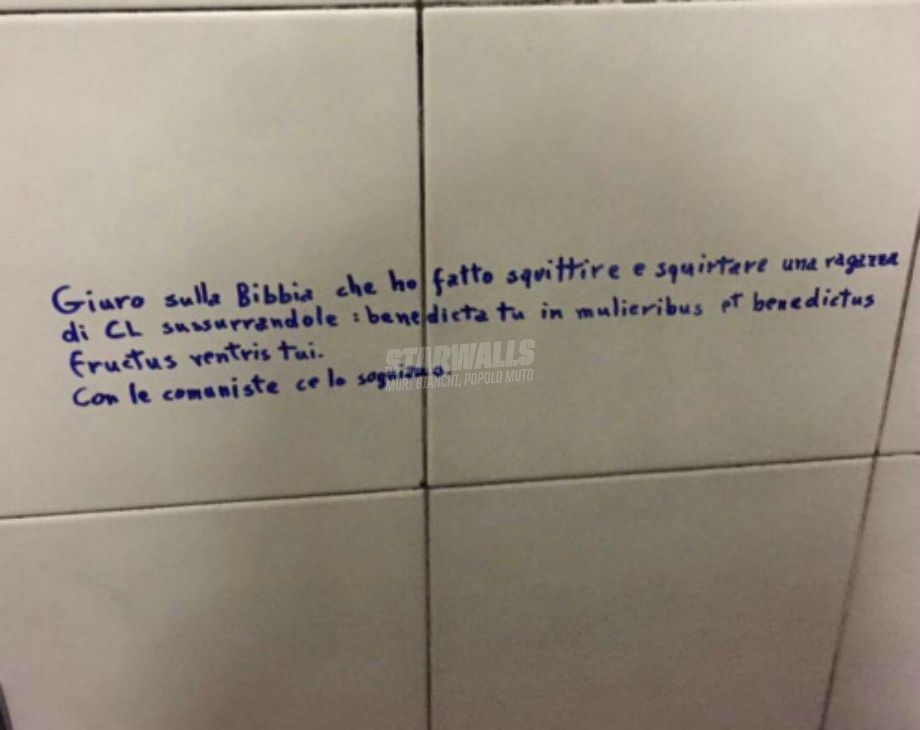 Giuro sulla Bibbia che ho fatto squittire e squirtare una ragazza
di CL sussurrandole : benedicta tu in mulieribus et benedictus
fructus ventris tui.
Con le comuniste ce lo sogniamo.
STARWALLS
MURI BIANCHI, POPOLO MUTO